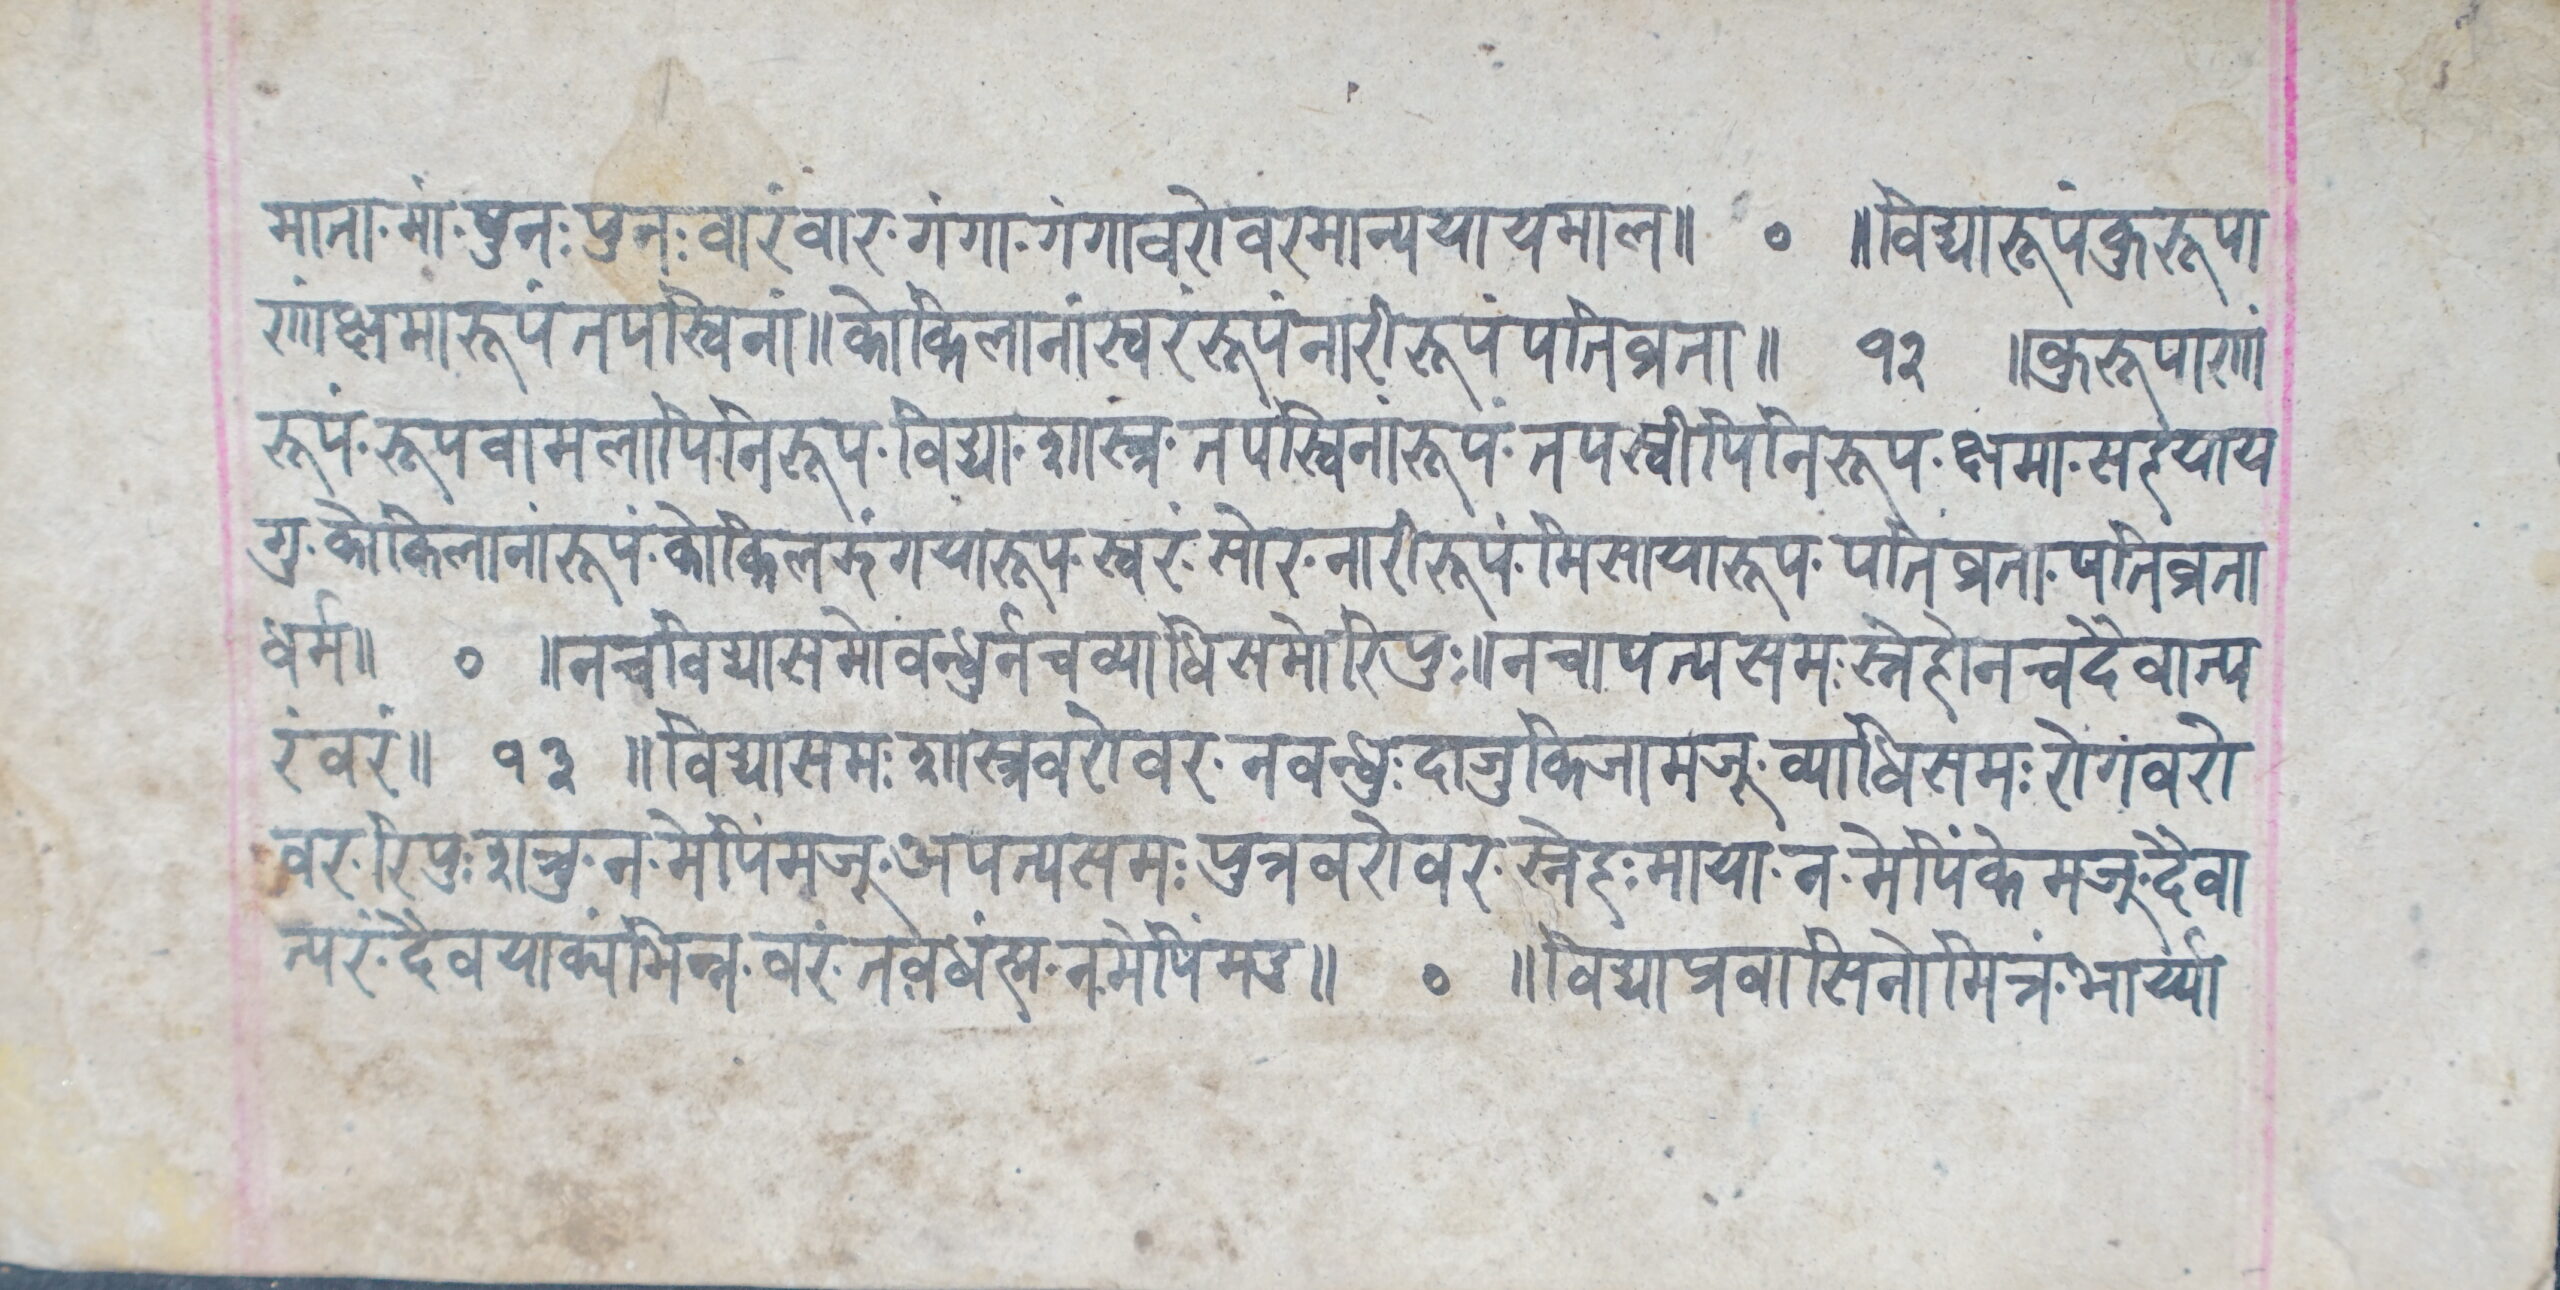 माता·मां·पुनः पुनः वारंवार·गंगा·गंगावरोवरमान्ययायमाल॥ ० ॥विद्यारूपंकुरूपा
राणांक्षमारूपंतपस्विनां॥कोकिलानांस्वरंरूपंनारीरूपंपतिव्रता॥ १२ ॥कुरूपाराणां
रूपं·रूपवामलापिनिरूप·विद्या·शास्त्र·तपस्विनांरूपं·तपस्वीपिनिरूप·क्षमा·सहयाय
गु·कोकिलानांरूपं·कोकिलझंगयारूप·स्वरं·सोर·नारीरूपं·मिसायारूप·पतिव्रता·पतिव्रता
धर्म॥ ० ॥नचविद्यासमोवन्धुर्नचव्याधिसमोरिपुः॥नचापत्यसमःस्नेहोनचदैवात्प
रंवरं॥ १३ ॥विद्यासमःशास्त्रवरोवर·नवन्धुःदाजुकिजामजू·व्याधिसमःरोगंवरो
वर·रिपुःशत्रु·न·मेपिंमजू·अपत्यसमःपुत्रवरोवर·स्नेहःमाया·न·मेपिंकेमजू·दैवा
त्परं·दैवयाक्यंभिन्न·वरं·तवधंह्म·नमेपिंमदु॥ ० ॥विद्याप्रवासिनोमित्रं·भार्य्या